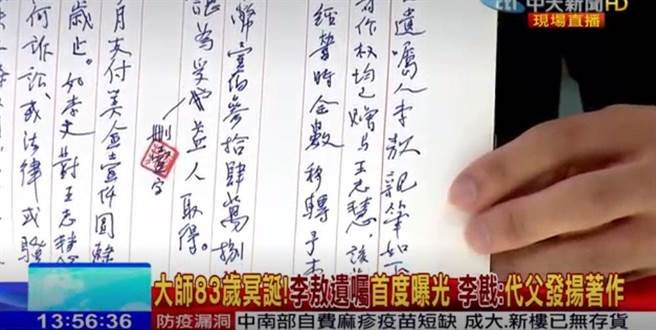 中天新聞HD
現場直播
遺囑人李敖親筆如
作權均已贈与王志慧,該
暫時全數移轉予本
幣壹佰參拾肆萬捌
為受益人取得。
刪 字
月支付美金壹仟圓
歲止。如李文對王志
何訴訟或法律或騷
大師83歲冥誕!李敖遺囑首度曝光 李戡:代父發揚著作
13:56:36
防疫漏洞 中南部自費麻疹疫苗短缺 成大.新樓已無存貨